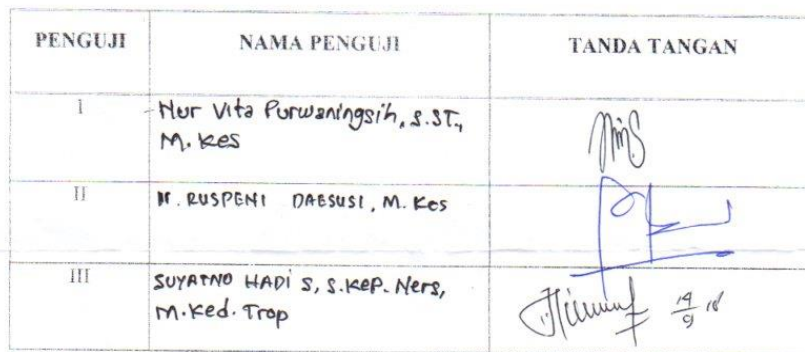 PENGUJI NAMA PENGUJI TANDA TANGAN
I Nur Vita Purwaningsih, S.ST.,
M. Kes
II Ir. RUSPENI DAESUSI, M. Kes
III SUYATNO HADI S, S.Kep. Ners,
M.Ked. Trop